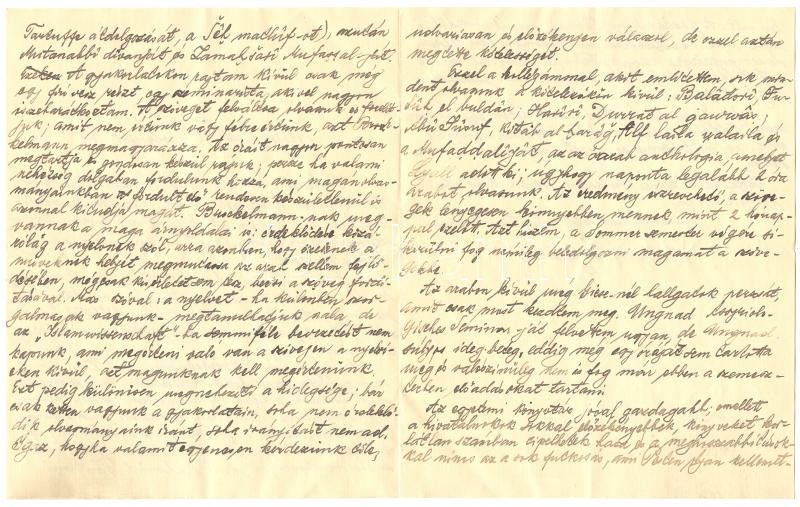 Tartuffe átdolgozását, a Šêḫ matlûf-ot), azután
Mutanabbî dîvânját és Zamaḫšarî Mufaṣṣal-ját.
Ezeken a gyakorlatokon rajtam kívül csak még
egy fiú vesz részt, egy szeminarista, akivel nagyon
összebarátkoztam. A szöveget felváltva olvassuk és fordít-
juk; amit nem értünk vagy félreértünk, azt Brockel-
kelmann megmagyarázza. Az óráit nagyon pontosan
megtartja és gondosan készül rájuk; persze ha valami
nehézség dolgában fordulunk hozzá, ami magánolvas-
mányainkban fordult elő rendesen készületlenül is
azonnal kivágja magát. Brockelmann-nak meg-
vannak a maga árnyoldalai is: érdeklődése kizá-
rólag a nyelvnek szól, arra azonban, hogy ezeknek a
műveknek helyét megmutassa az arab szellem fejlő-
désében, mégcsak kísérletet sem tesz, beéri a szöveg fordí-
tásával. Más szóval: a nyelvet – ha különben szor-
galmasak vagyunk – megtanulhatjuk nála, de
az „Islamwissenschaft"-ba semmiféle bevezetést nem
kapunk, ami megérteni való van a szövegen a nyelvi-
eken kívül, azt magunknak kell megértenünk.
Ezt pedig különösen megnehezíti a hidegsége; bár
csak ketten vagyunk a gyakorlatain, soha nem érdeklő-
dik olvasmányaink iránt, soha irányítást nem ad.
Igaz, hogy ha valamit egyenesen kérdezünk tőle,
udvariasan és előzékenyen válaszol, de ezzel aztán
megtette kötelességét.
Ezzel a kollégámmal, akit említettem, sok min-
dent olvasunk a kötelezőkön kívül: Balâdorî, Fu-
tûḥ el buldân; Ḥarîrî, Durrat al ġawwâṣ;
Abû Jûsuf, Kitâb al ḫarâǧ, Alf laila walaila és
a Mufaḍḍalîjât, az az ósrak anthologia, amelyet
Lyall adott ki; úgyhogy naponta legalább 2 óra
arabot olvasunk. Az eredmény észrevehető, a szöve-
gek lényegesen könnyebben mennek mint 2 hónap-
pal ezelőtt. Azt hiszem, a Sommersemester végére si-
kerülni fog némileg beledolgozni magamat a szöve-
gekbe.
Az arabon kívül még Giese-nél hallgatok perzsát,
amit csak most kezdtem meg. Ungnad Assyriolo-
gisches Seminar-ját felvettem ugyan, de Ungnad
súlyos idegbeteg, eddig még egy óráját sem tartotta
meg és valószínűleg nem is fog már ebben a szemesz-
terben előadásokat tartani.
Az egyetemi könyvtár jóval gazdagabb; emellett
a hivatalnokok sokkal előzékenyebbek, könyveket kor-
látlan számban cipelhetek haza és a meghosszabbítások-
kal nincs az a sok futkosás, ami Pesten olyan kellemet-